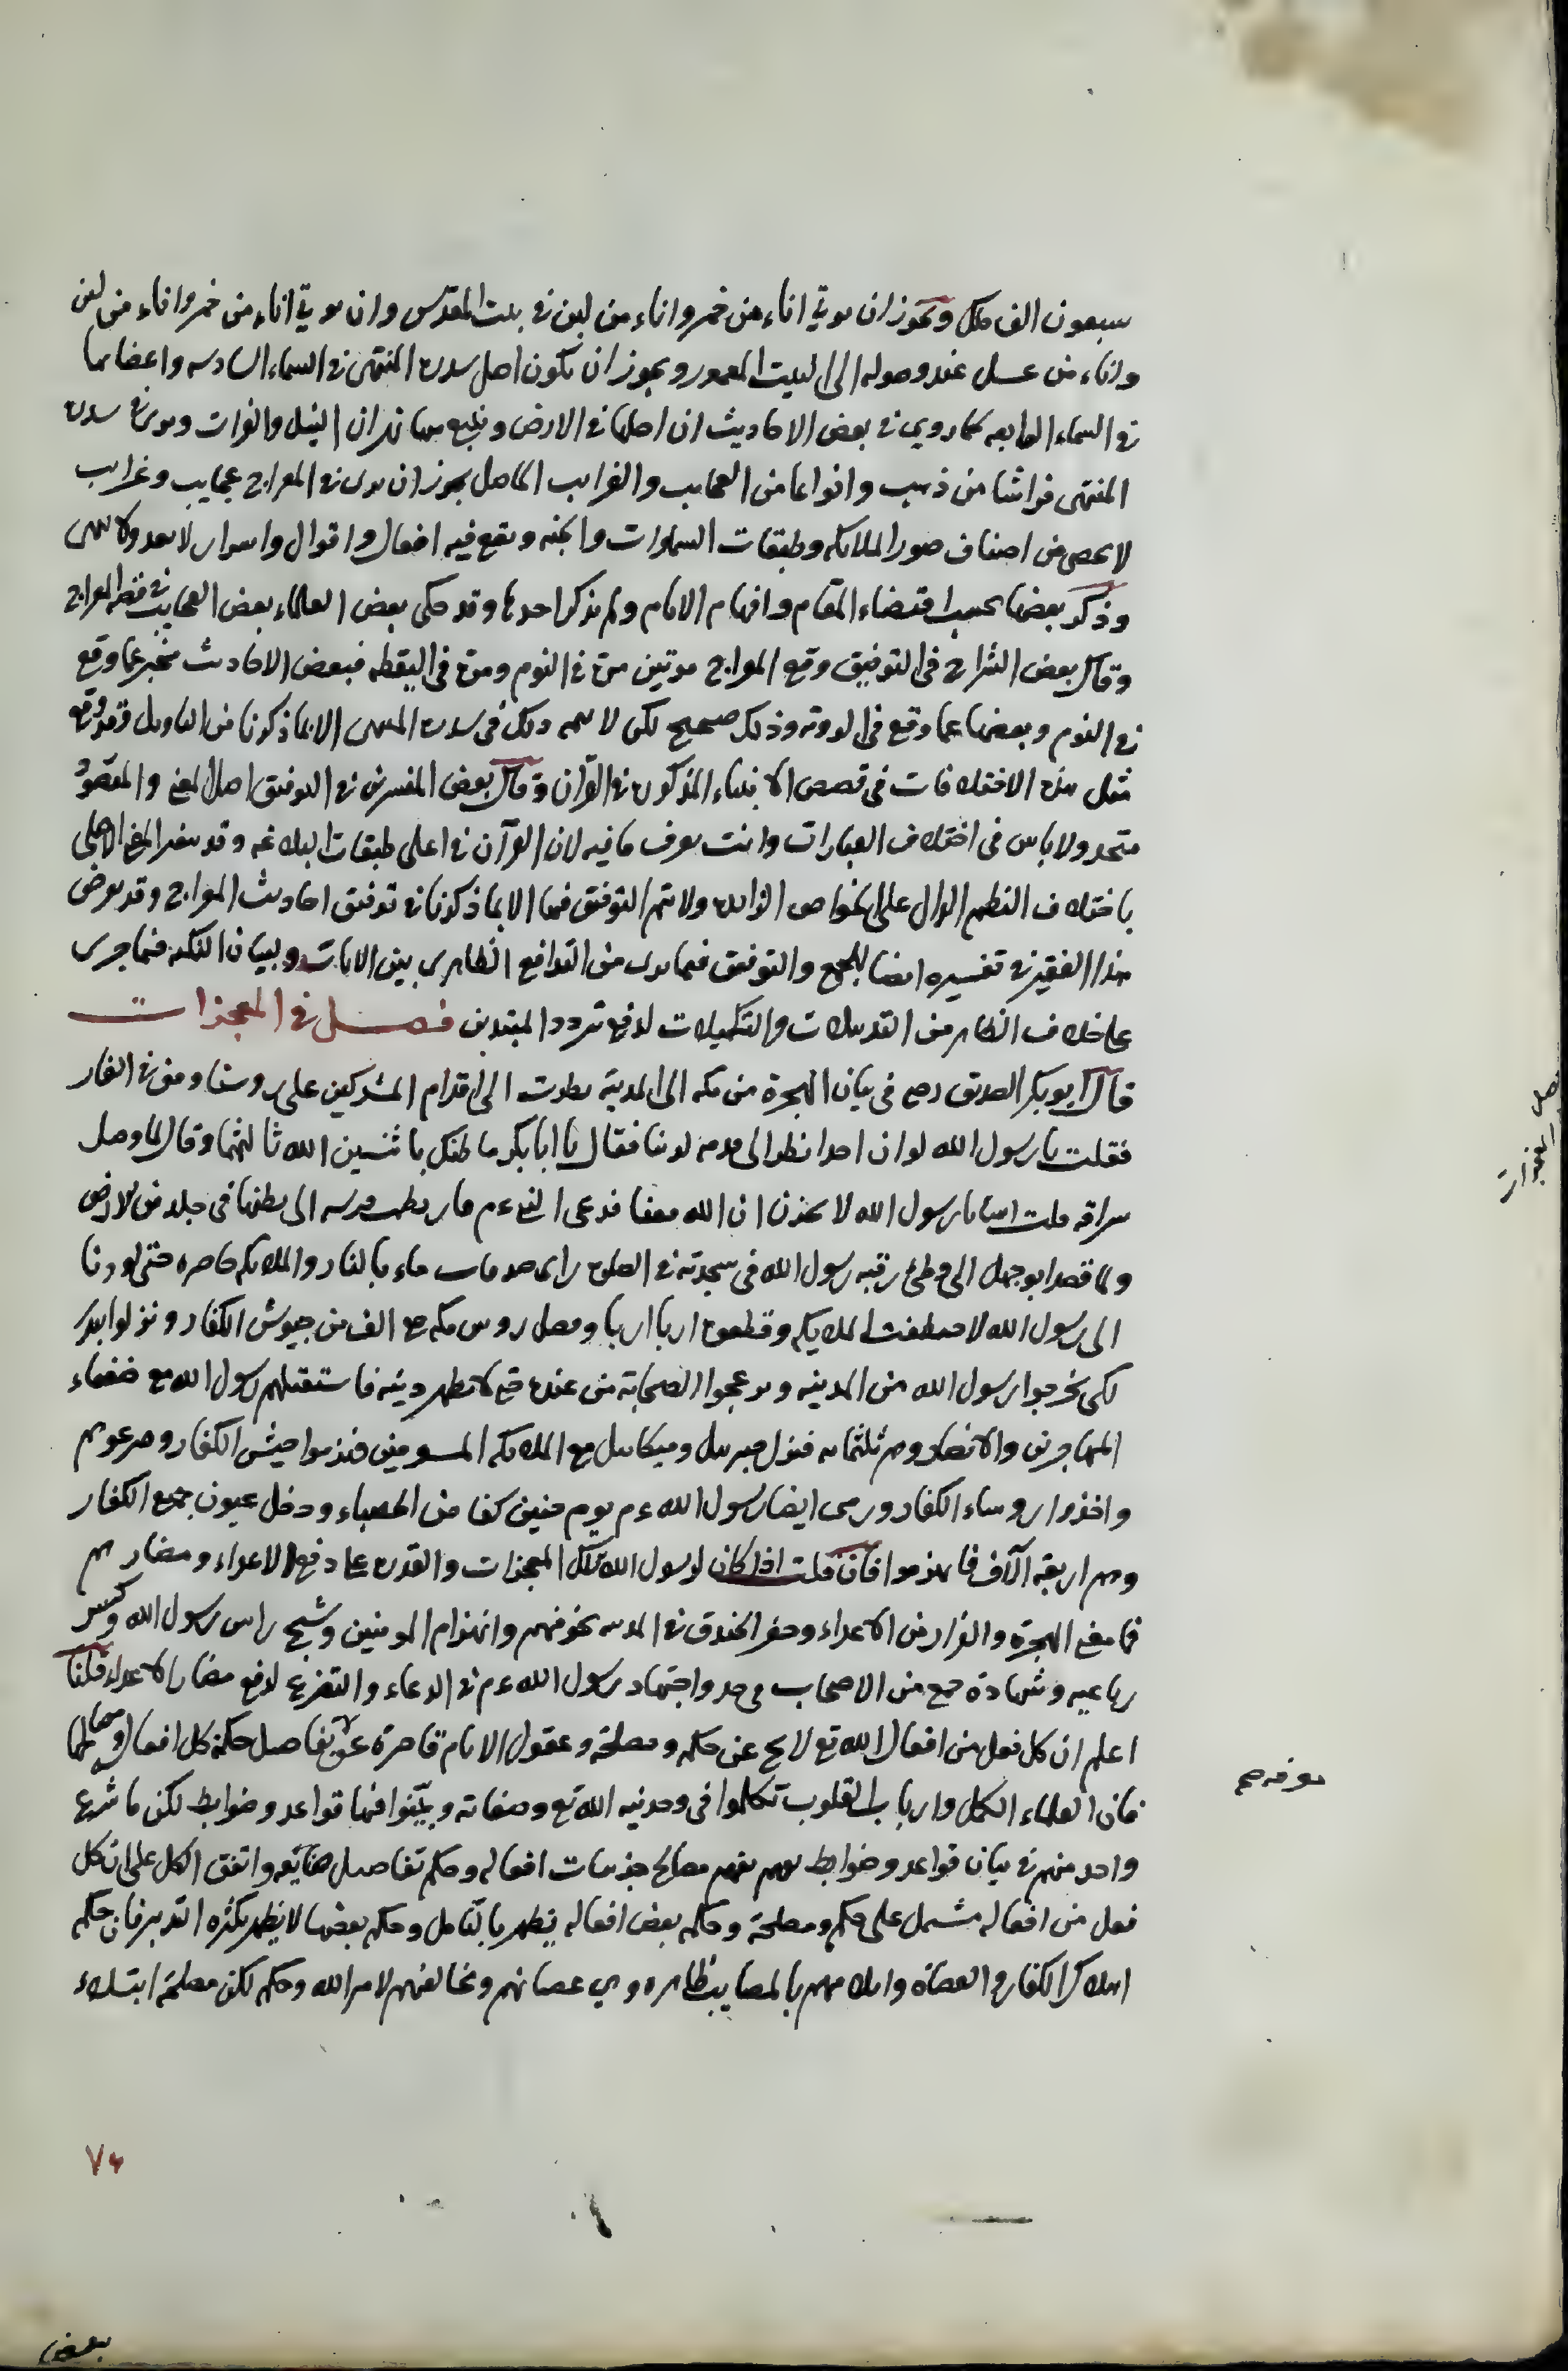 سبعون الف ملك ويجوز ان يوتي اناء من خمر واناء من لبن في بيت المقدس وان يوتي اناء من خمر واناء من لبن
واناء من عسل عند وصوله الى البيت المعمور ويجوز ان يكون اصل سدرة المنتهى في السماء السادسه واعضاءها
في السماء السابعه كما روي في بعض الاحاديث ان اصلها في الارض وينبع منها نهران النيل والفرات ويرى في سدرة
المنتهى فراشا من ذهب وانواعا من العجايب والغرايب الحاصل يجوز ان يرى في المعراج عجايب وغرايب
لا يحصى من اصناف صور الملائكه وطبقات السماوات والجنه ويقع فيه افعال واقوال واسرار لا يعد ولا يحصى
وذكر بعضها بحسب اقتضاء المقام وافهام الانام ولم يذكر احدها وقد حكى بعض العلماء بعض العجايب في قصة المعراج
وقال بعض الشراح في التوفيق وقع المعراج مرتين مرة في النوم ومرة في اليقظه فبعض الاحاديث مخبر عما وقع
في النوم وبعضها عما وقع في الروية وذلك صحيح لكن لا يتم ذلك في سدرة المنتهى الا بما ذكرنا من التاويل وقد وقع
مثل هذه الاختلافات في قصص الانبياء المذكورة في القرآن وقال بعض المفسرين في التوفيق اصل المعنى والمقصود
متحد ولا باس في اختلاف العبارات وانت تعرف ما فيه لان القرآن في اعلى طبقات البلاغه وقد يتغير المعنى الاصلي
باختلاف النظم الدال على الخواص الزايدة ولا يتم التوفيق فيها الا بما ذكرنا في توفيق احاديث المعراج وقد تعرض
هذا الفقير في تفسيره ايضا للجمع والتوفيق فيما يرى من التدافع الظاهري بين الايات وبيان النكته فيما جرى
على خلاف الظاهر من التذييلات والتكميلات لدفع تردد المبتدين فصل في المعجزات
قال ابو بكر الصديق رضع في بيان الهجرة من مكه الى المدينة نظرت الى اقدام المشركين على روسنا ونحن في الغار
فقلت يا رسول الله لو ان احدا نظر الى قدمه لرانا فقال يا ابا بكر ما ظنك باثنين الله ثالثهما وقال لما وصل
سراقه قلت اتينا يا رسول الله لا تحزن ان الله معنا فدعى النبي ءم فارتطمت فرسه الى بطنها في جلد من الارض
ولما قصد ابو جهل الى وطئ رقبه رسول الله في سجدته في الصلوة راى خندقا ماء بالنار والملائكه حاضرة حتى لو دنا
الى رسول الله لاختطفته الملايكه وقطعوه اربا اربا ووصل روس مكه مع الف من جيوش الكفار ونزلوا ببدر
لكي يخرجوا رسول الله من المدينه ويزعجوا الصحابة من عنده حتى لا يظهر دينه فاستقبلهم رسول الله مع ضعفاء
المهاجرين والانصار وهم ثلثمائه فنزل جبريل وميكائيل مع الملائكه المسومين فهزموا جيش الكفار وصرعوهم
واخذوا روساء الكفار ورمى ايضا رسول الله ءم يوم حنين كفا من الحصباء ودخل عيون جميع الكفار
وهم اربعة آلاف فانهزموا فان قلت اذا كان لرسول الله تلك المعجزات والقدرة على دفع الاعداء ومضارهم
فما معنى الهجرة والفرار من الاعداء وحفر الخندق في المدينه لخوفهم وانهزام المومنين وشج راس رسول الله وكسر
رباعيه وشهادة جمع من الاصحاب في احد واجتهاد رسول الله ءم في الدعاء والتضرع لدفع مضار الاعداء قلنا
اعلم ان كل فعل من افعال الله تع لا يخ عن حكمه ومصلحة وعقول الانام قاصرة عن تفاصيل حكمة كل افعاله ومصالحها
فان العلماء الكمل وارباب القلوب تكلموا في وحدنيه الله تع وصفاته وبيّنوا فيها قواعد وضوابط لكن ما شرع
واحد منهم في بيان قواعد وضوابط بهم يفهم مصالح جزئيات افعاله وحكم تفاصيل صنايعه واتفق الكل على ان كل
فعل من افعاله مشتمل على حكم ومصلحة وحكمه بعض افعاله يظهر بالتامل وحكم بعضها لا يظهر بكثرة التدبر فان حكم
اهلاك الكفار والعصاة وابتلائهم بالمصايب ظاهره وهي عصيانهم ومخالفتهم لامر الله وحكم لكن مصلحة ابتلاء
فصل المعجزات
٧٤
بعض